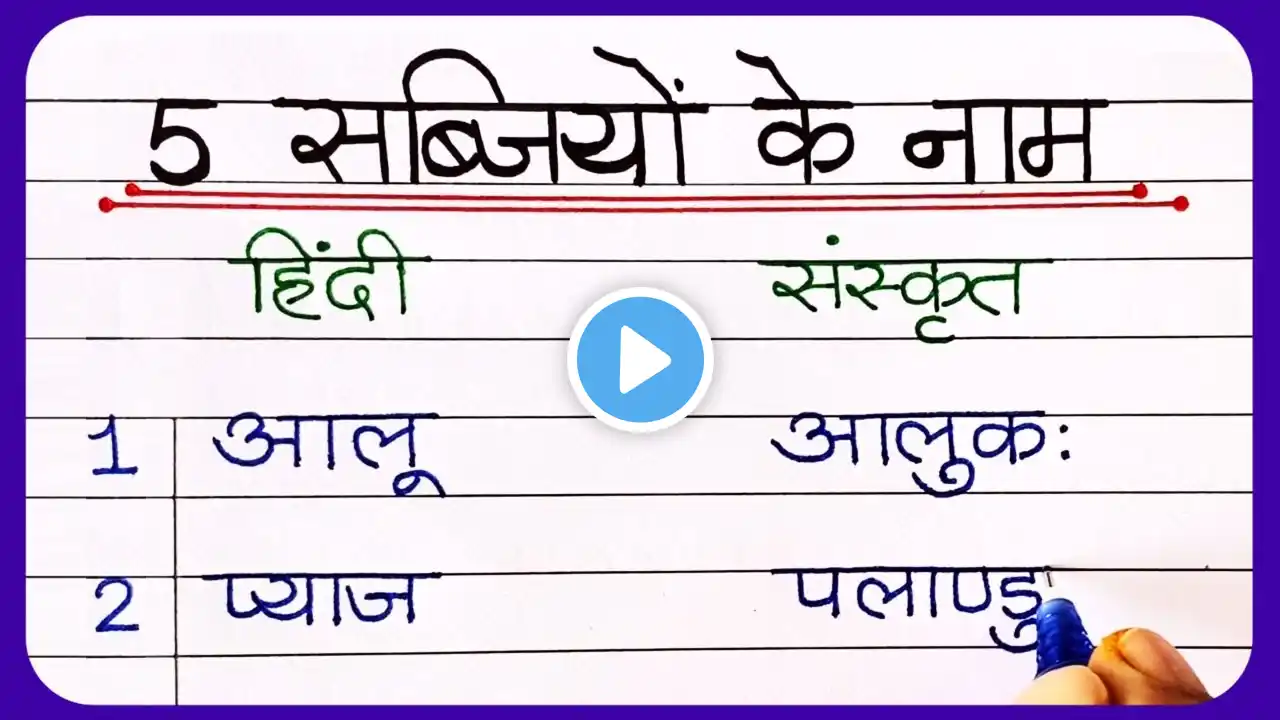 5 सब्जियों के नाम
हिंदी संस्कृत
1 आलू आलुकः
2 प्याज पलाण्डु